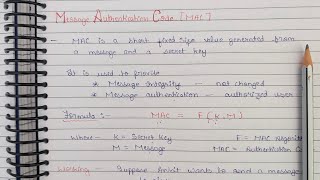 Message Authentication Code [MAC]
- MAC is a short fixed size value generated from
a message and a secret key
It is used to provide
* Message Integrity - not changed
* Message authentication - authorized user
Formula :- MAC = F(K, M)
Where - K = Secret Key F = MAC Algorith
M = Message MAC = Authentication C
Working - Suppose Ankit wants to send a message